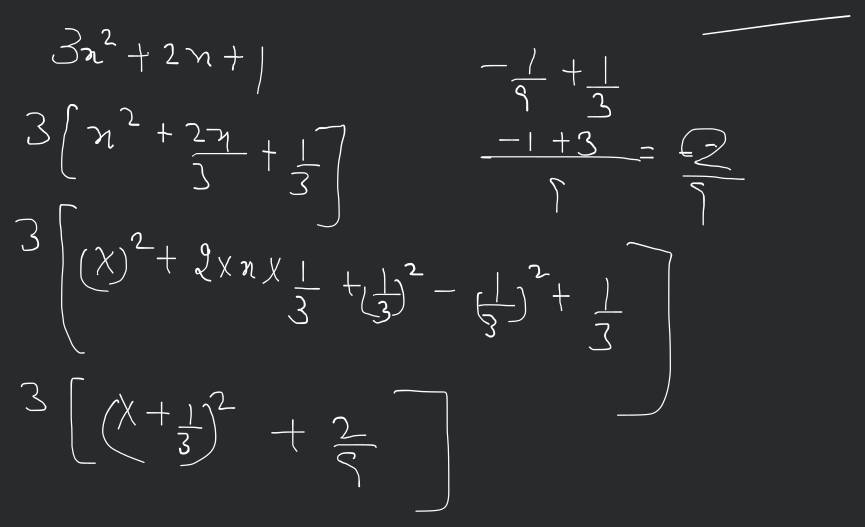 3x² + 2x + 1
3[x² + 2x/3 + 1/3]
3[(x)² + 2×x×1/3 + (1/3)² - (1/3)² + 1/3]
3[(x + 1/3)² + 2/9]
-1/9 + 1/3
(-1 + 3)/9 = 2/9